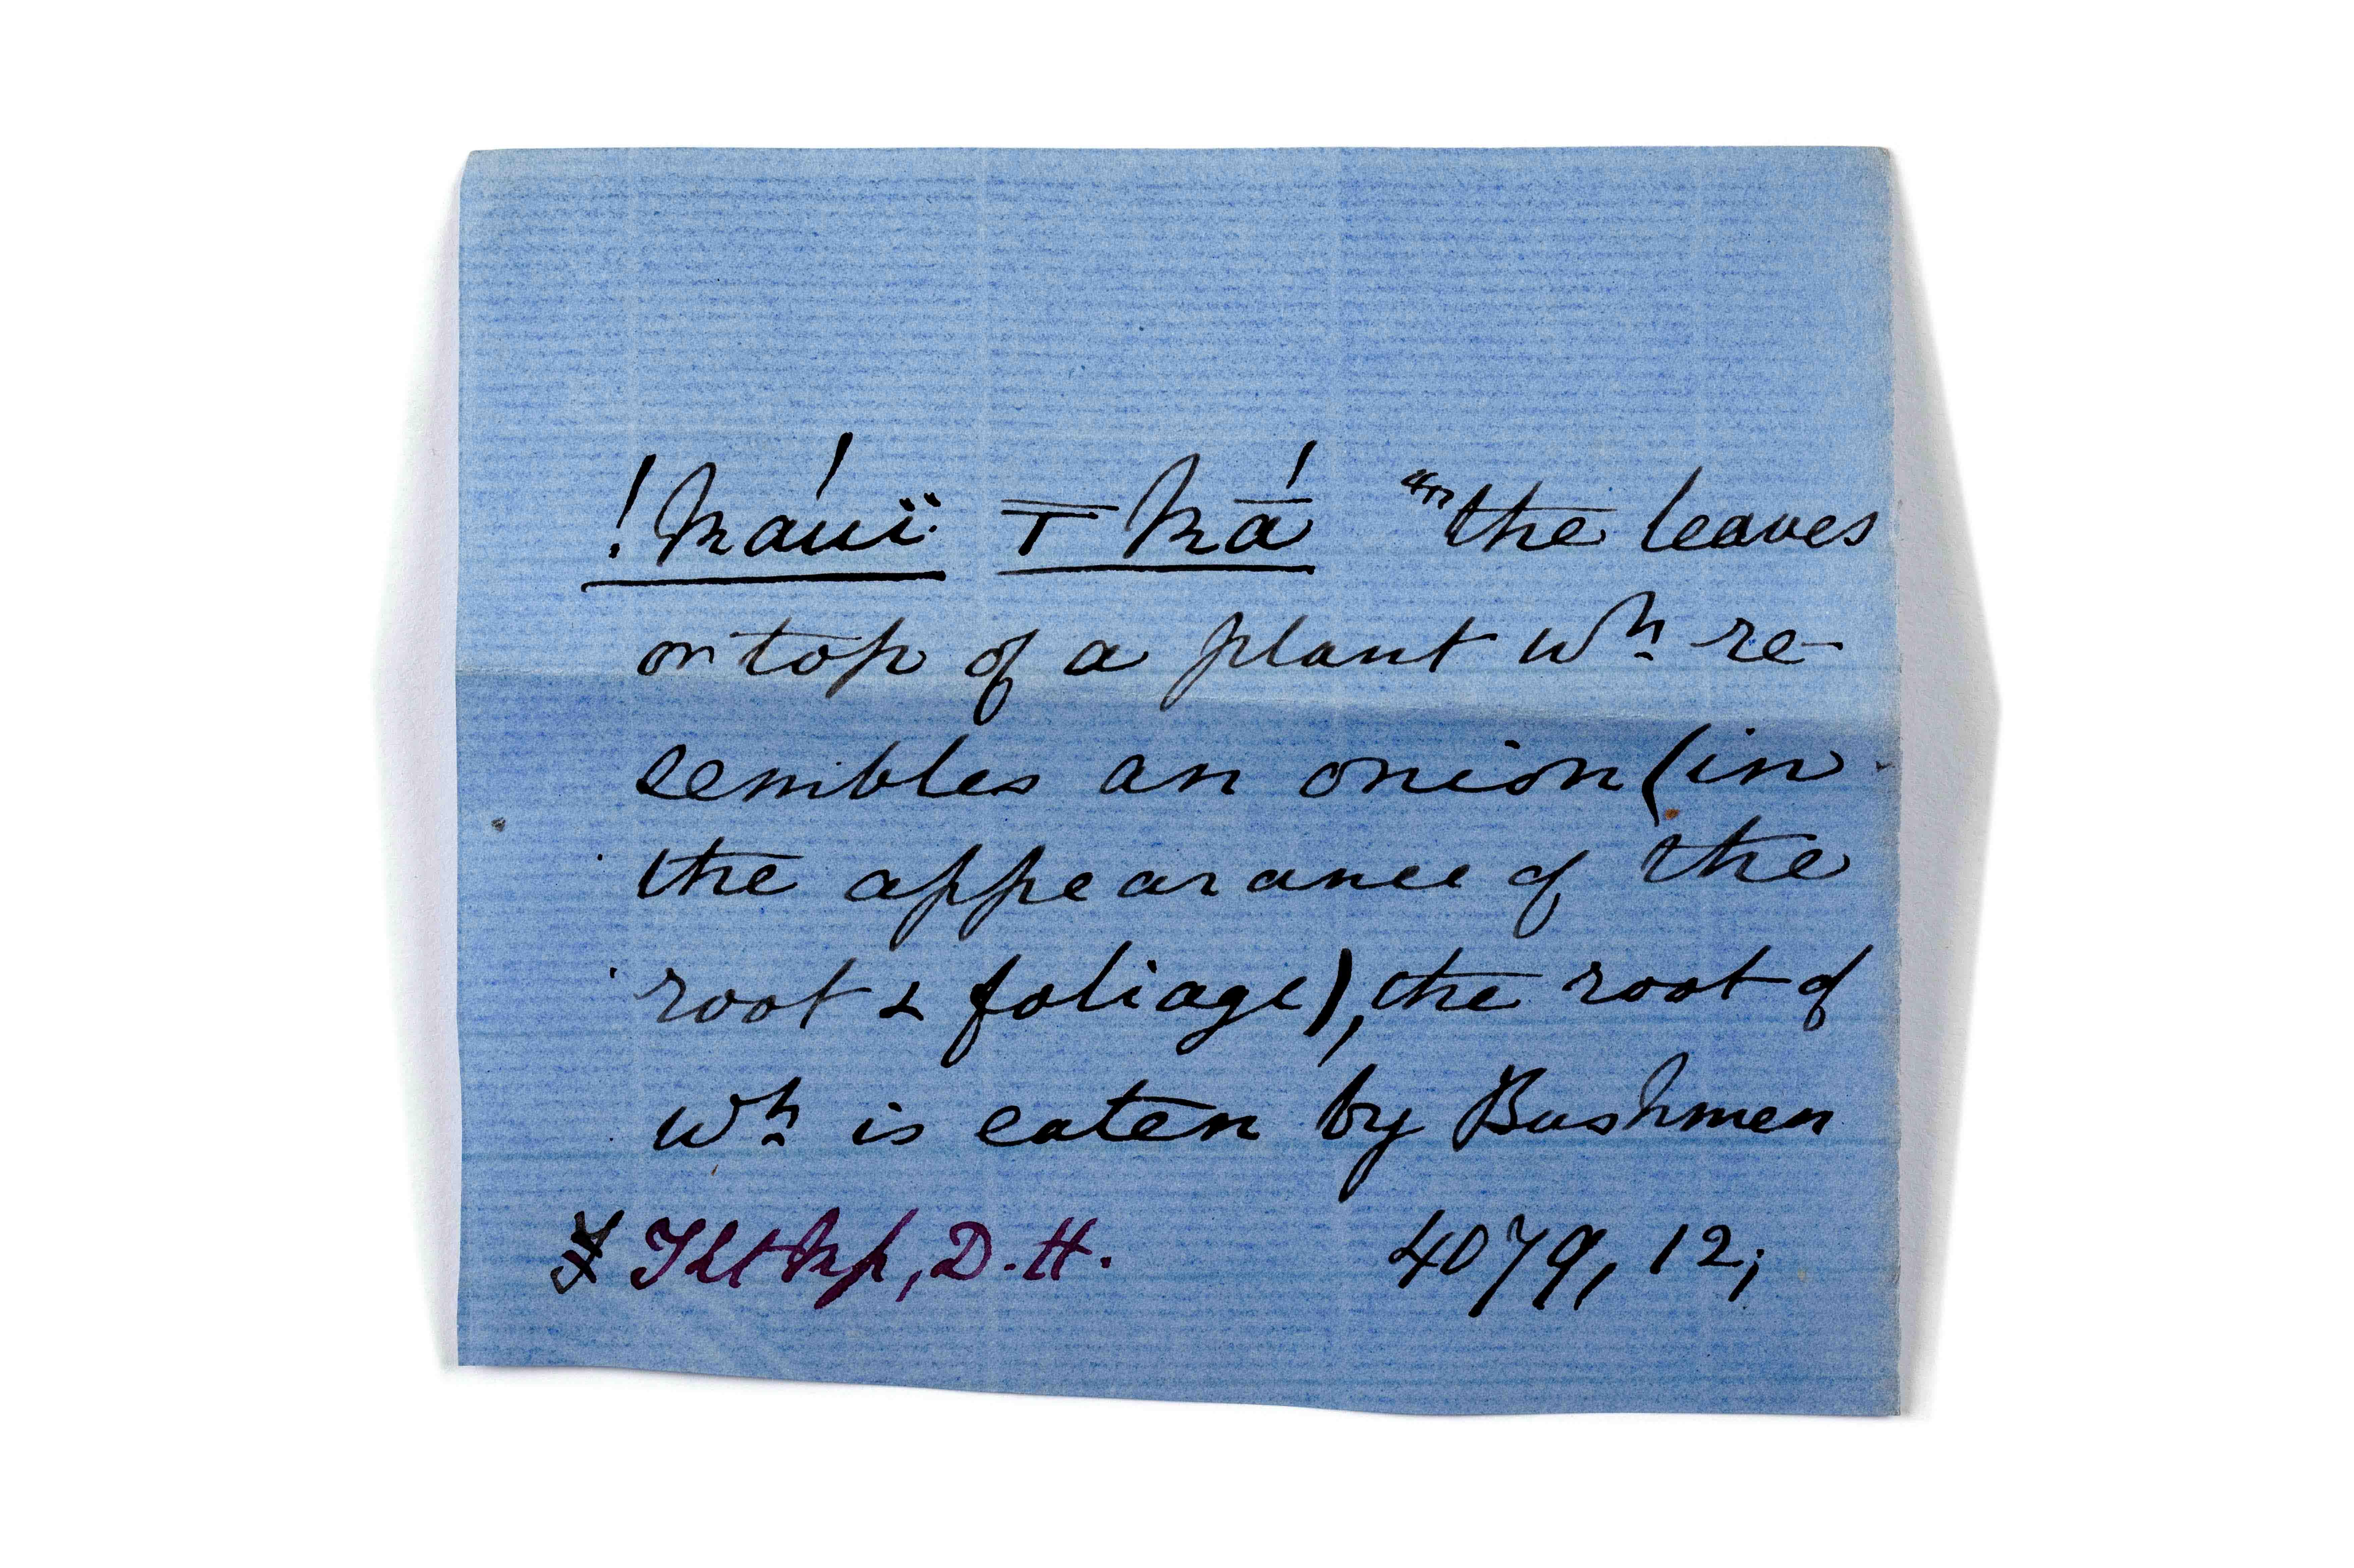 !káuï T̿ kā́ "the leaves
on top of a plant wh re-
sembles an onion (in
the appearance of the
root & foliage), the root of
wh is eaten by Bushmen
D.H. 4079, 12;